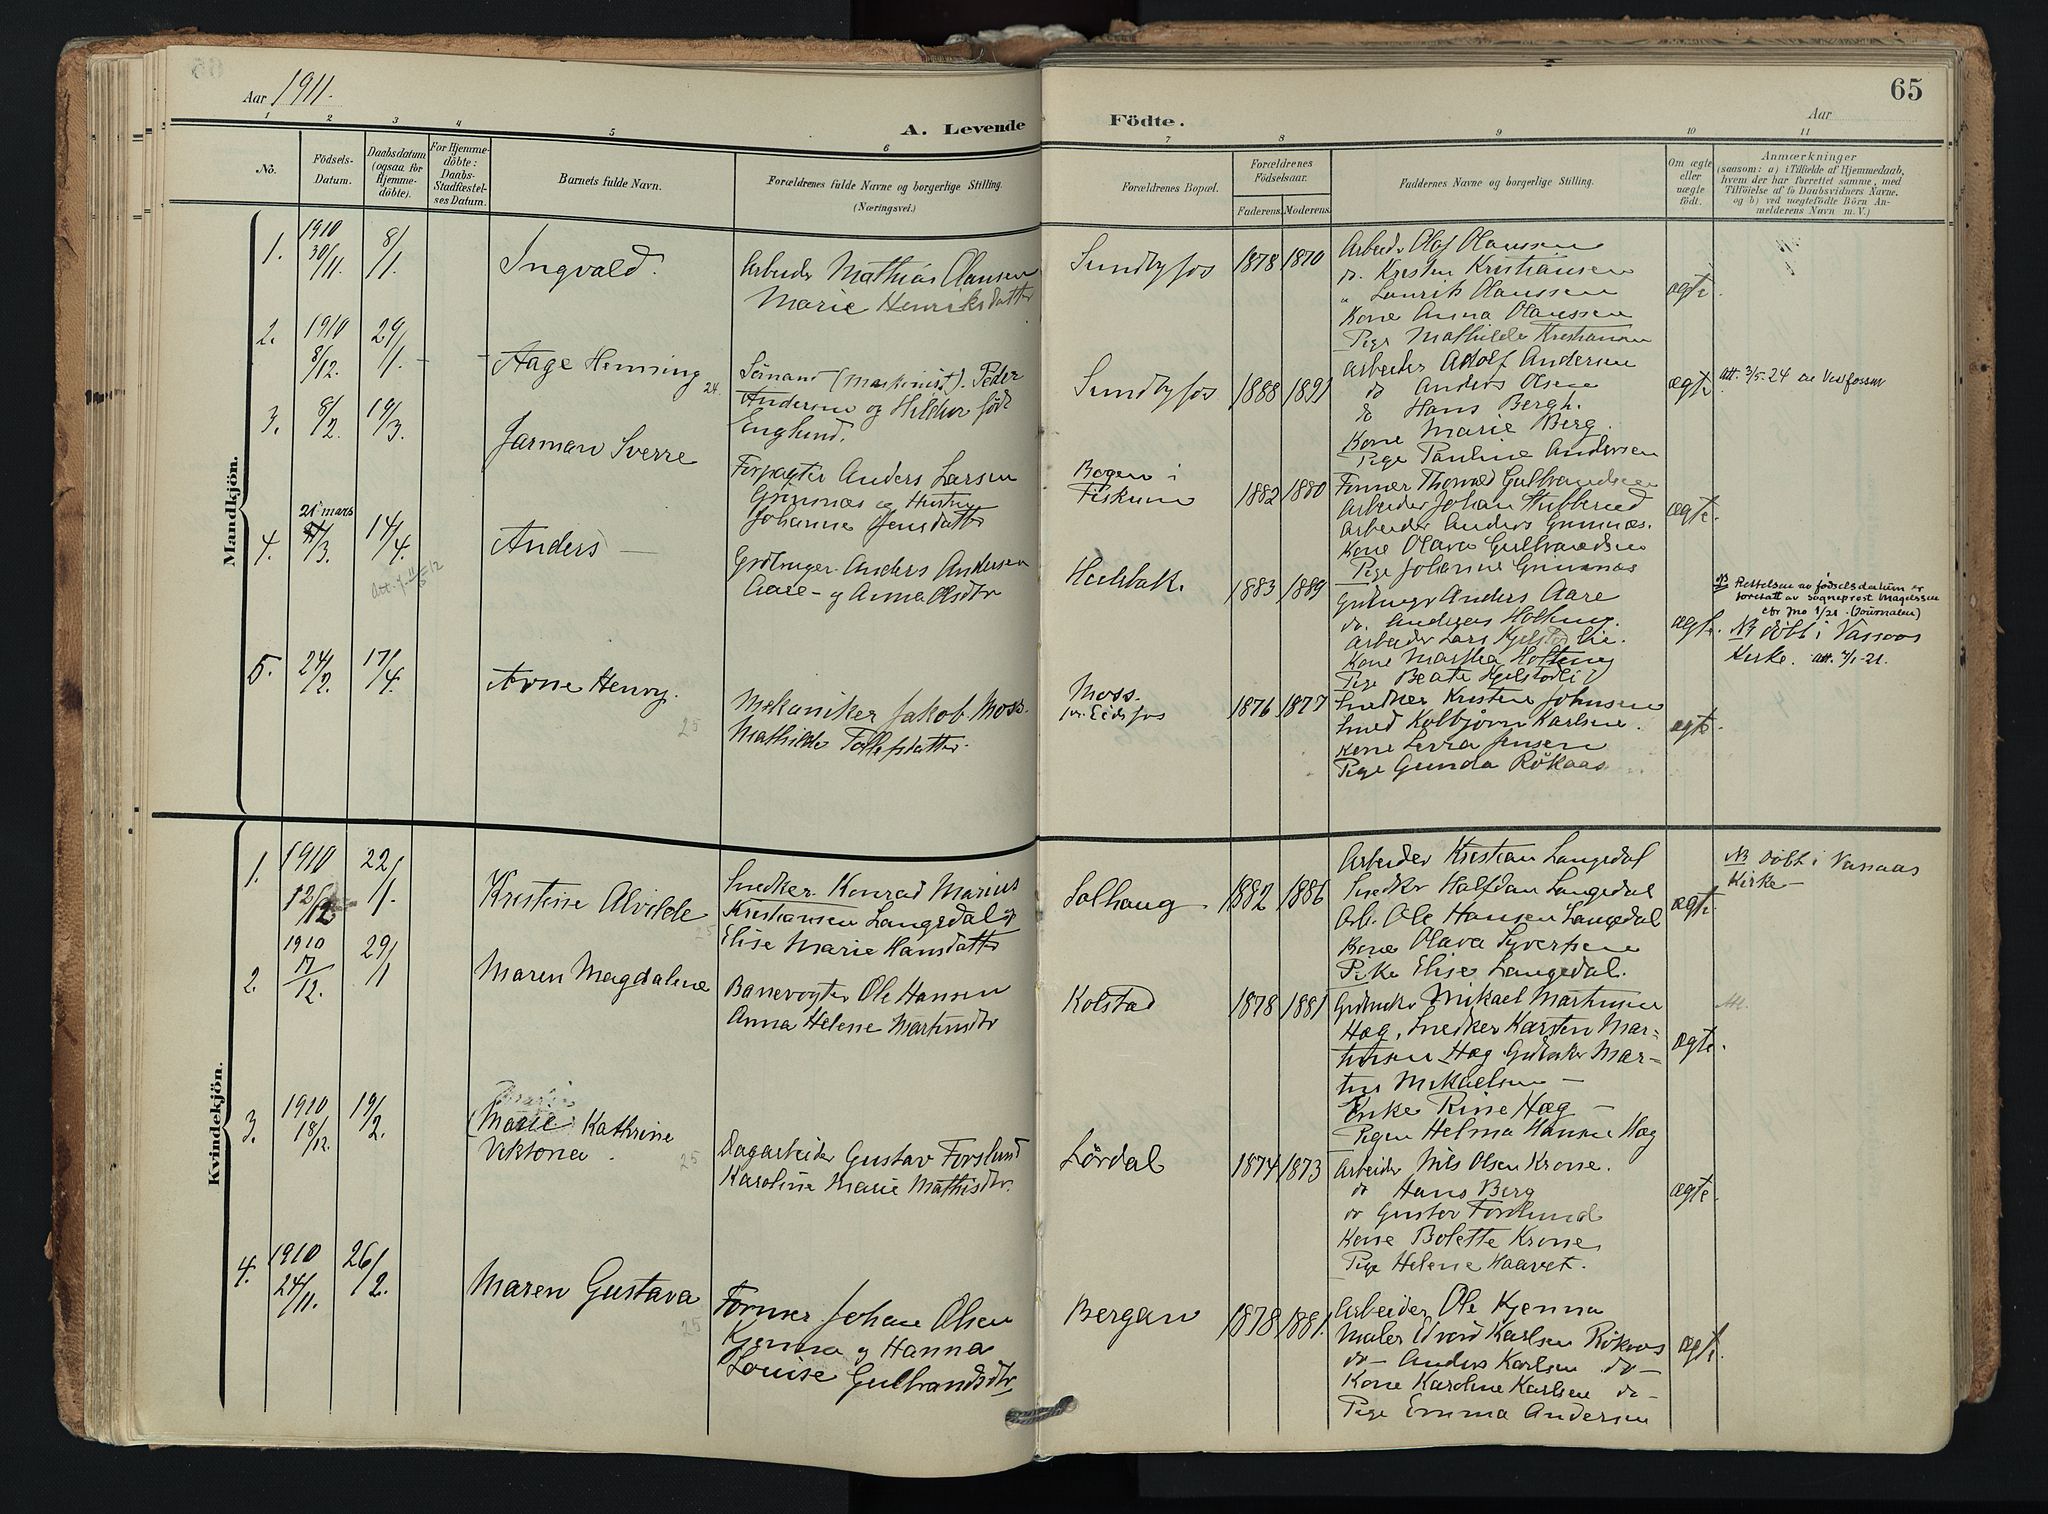 Aar 1911.
65
Aar
A. Levende
Födte.
1 2 3 4 5 6 7 8 9 10 11
No.
Födsels-
Datum.
Daabsdatum
(ogsaa for
Hjemme-
döbte).
For Hjemme-
döbte:
Daabs-
Stadfæstel-
ses Datum.
Barnets fulde Navn.
Forældrenes fulde Navne og borgerlige Stilling.
(Næringsvei.)
Forældrenes Bopæl.
Forældrenes
Födselsaar.
Faderens.
Moderens.
Faddernes Navne og borgerlige Stilling.
Om ægte
eller
uægte
födt.
Anmærkninger
(saasom: a) i Tilfælde af Hjemmedaab,
hvem der har forrettet samme, med
Tilföielse af to Daabsvidners Navne.
og b) ved uægtefödte Börn An-
melderens Navn m. V.)
Mandkjön.
1.
1910
30/11.
8/1
Ingvald.
Arbeider Mathias Olausen
Marie Henriksdatter
Sundbyfos
1878 1870
Arbeider Olaf Olaussen
do. Kristen Kristiansen
" Laurits Olaussen
Kone Anna Olaussen
Pige Mathilde Kristiansen
ægte.
2.
1910
8/12.
29/1
Aage Henning
24
Sömand (Maskinist). Peder
Andersen og Hildur föd
Englund.
Sundbyfos
1888 1891
Arbeider Adolf Andersen
do Anders Olsen
do Hans Bergh.
Kone Marie Berg.
Pige Pauline Andersen
ægte
Att. 3/5-24 av Vestfossen
3.
8/2.
19/3.
Jarman Sverre
Forpagter Anders Larsen
Grinnæs og Hustru
Johanne Jensdatter
Bogen i
Fiskum
1882 1880
Former Thorvald Gulbrandsen
Arbeider Johan Stubberud
Arbeider Anders Grinnæs.
Kone Olava Gulbrandsen
Pige Johanne Grinnæs
ægte.
4.
21 mars
/3.
14/4.
Att. 11/5 12
Anders —
Grdbruger. Anders Andersen
Aare - og Anna Olsdtr
1883 1889
Anders Aare
do. Andreas Holtung.
Arbeider Lars
Kone Martha Holtung
Pige Beate
ægte.
NB Rettelsen av fødselsdatum er
foretatt av sogneprest Magelssen
cfr Jno 1/21. (Journalen)
NB döbt i Vassaas
Kirke. Att. 4/1-21.
5.
24/2.
17/4.
Arne Henry.
25
Mekaniker Jakob Moss.
Mathilde Tollefsdatter.
Moss.
pr. Eidsfos
1876 1877
Snedker Kristen Johnsen
Smed Kolbjørn Karlsen.
Kone Jensen
Pige Gunda Rökaas
ægte.
Kvindekjön.
1.
1910
12/12
22/1.
Kristine Alvilde
25
Snedker Konrad Marius
Kristiansen Langedal og
Elise Marie Hansdatter
Solhaug
1882 1886
Arbeider Kristian Langedal
Snedkr Halfdan Langedal
Arb. Ole Hansen Langedal
Kone Olava Syversen
Pike Elise Langedal.
ægte.
NB döbt i Vassaas
Kirke —
2.
1910
17/12.
29/1
Maren Magdalene
Banevogter Ole Hansen
Anna Helene Martinsdtr
Kolstad
1878 1881
Mikael Martinsen
Hæg, Snedker Karsten Mar-
tinsen Hæg, Mar-
tin Mikaelsen —
Enke Rine Hæg —
Pigen Helma Hansen Hæg
ægte.
Att.
3.
1910
18/12.
19/2.
(Marie Kathrine
Viktoria.
25
Dagarbeider Gustav Forslund
Karoline Marie Mathisdtr.
Lördal
1874 1873
Arbeider Nils Olsen Krone.
do Hans Berg
do Gustav Forslund
Kone Bolette Krone,
Pige Helene Haavet.
ægte.
4.
1910
24/11.
26/2.
Maren Gustava
25
Former Johan Olsen
Kjenna og Hanna
Louise Gulbrandsdtr
Bergan
1878 1881.
Arbeider Ole Kjenna
Maler Edvard Karlsen Rökaas
do — Anders Karlsen do —
Kone Karoline Karlsen do —
Pige Emma Andersen
ægte.